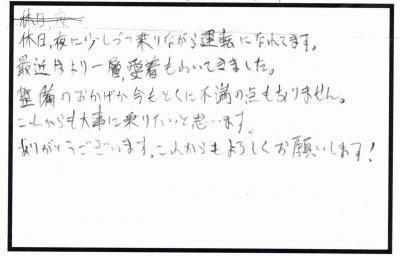 休日,夜に少しづつ乗りながら運転になれてます。
最近は前より一層,愛着もわいてきました。
整備のおかげか今もとくに不満の点もありません。
これからも大事に乗りたいと思います。
ありがとうございます。これからもよろしくお願いします!